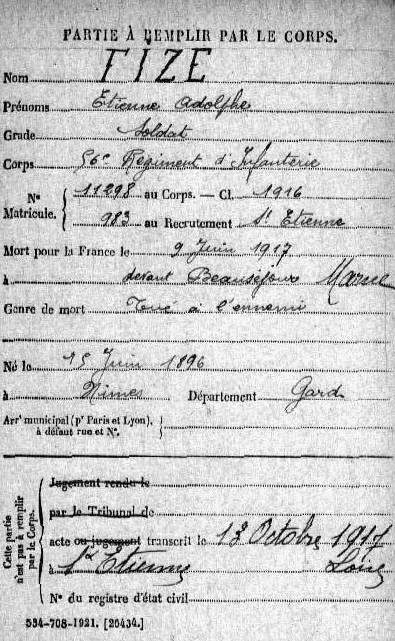 PARTIE À REMPLIR PAR LE CORPS.
Nom FIZE
Prénoms Etienne Adolphe
Grade Soldat
Corps 56e Régiment d'Infanterie
N° Matricule. { 11298 au Corps. — Cl. 1916
983 au Recrutement St Etienne
Mort pour la France le 9 Juin 1917
à devant Beauséjour Marne
Genre de mort Tué à l'ennemi
Né le 15 Juin 1896
à Nimes Département Gard
Arrt municipal (pr Paris et Lyon), à défaut rue et N°. }
Cette partie n'est pas à remplir par le Corps.
Jugement rendu le
par le Tribunal de
acte ou jugement transcrit le 13 Octobre 1917
à St Etienne Loire
N° du registre d'état civil
534-708-1921. [26434.]